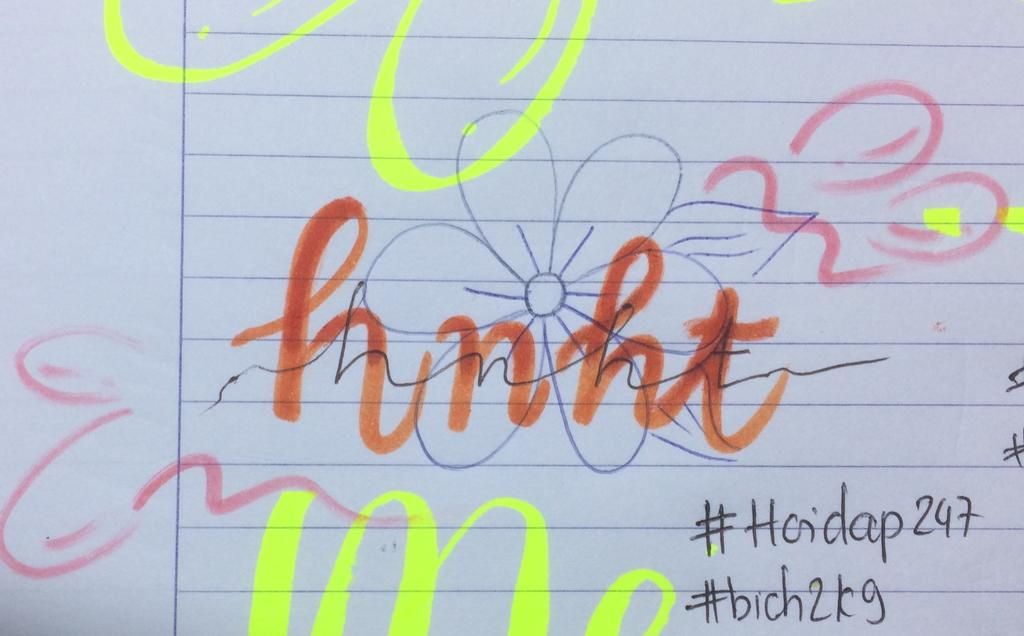 hnht
hnht
#Hoidap247
#bich2k9
Me